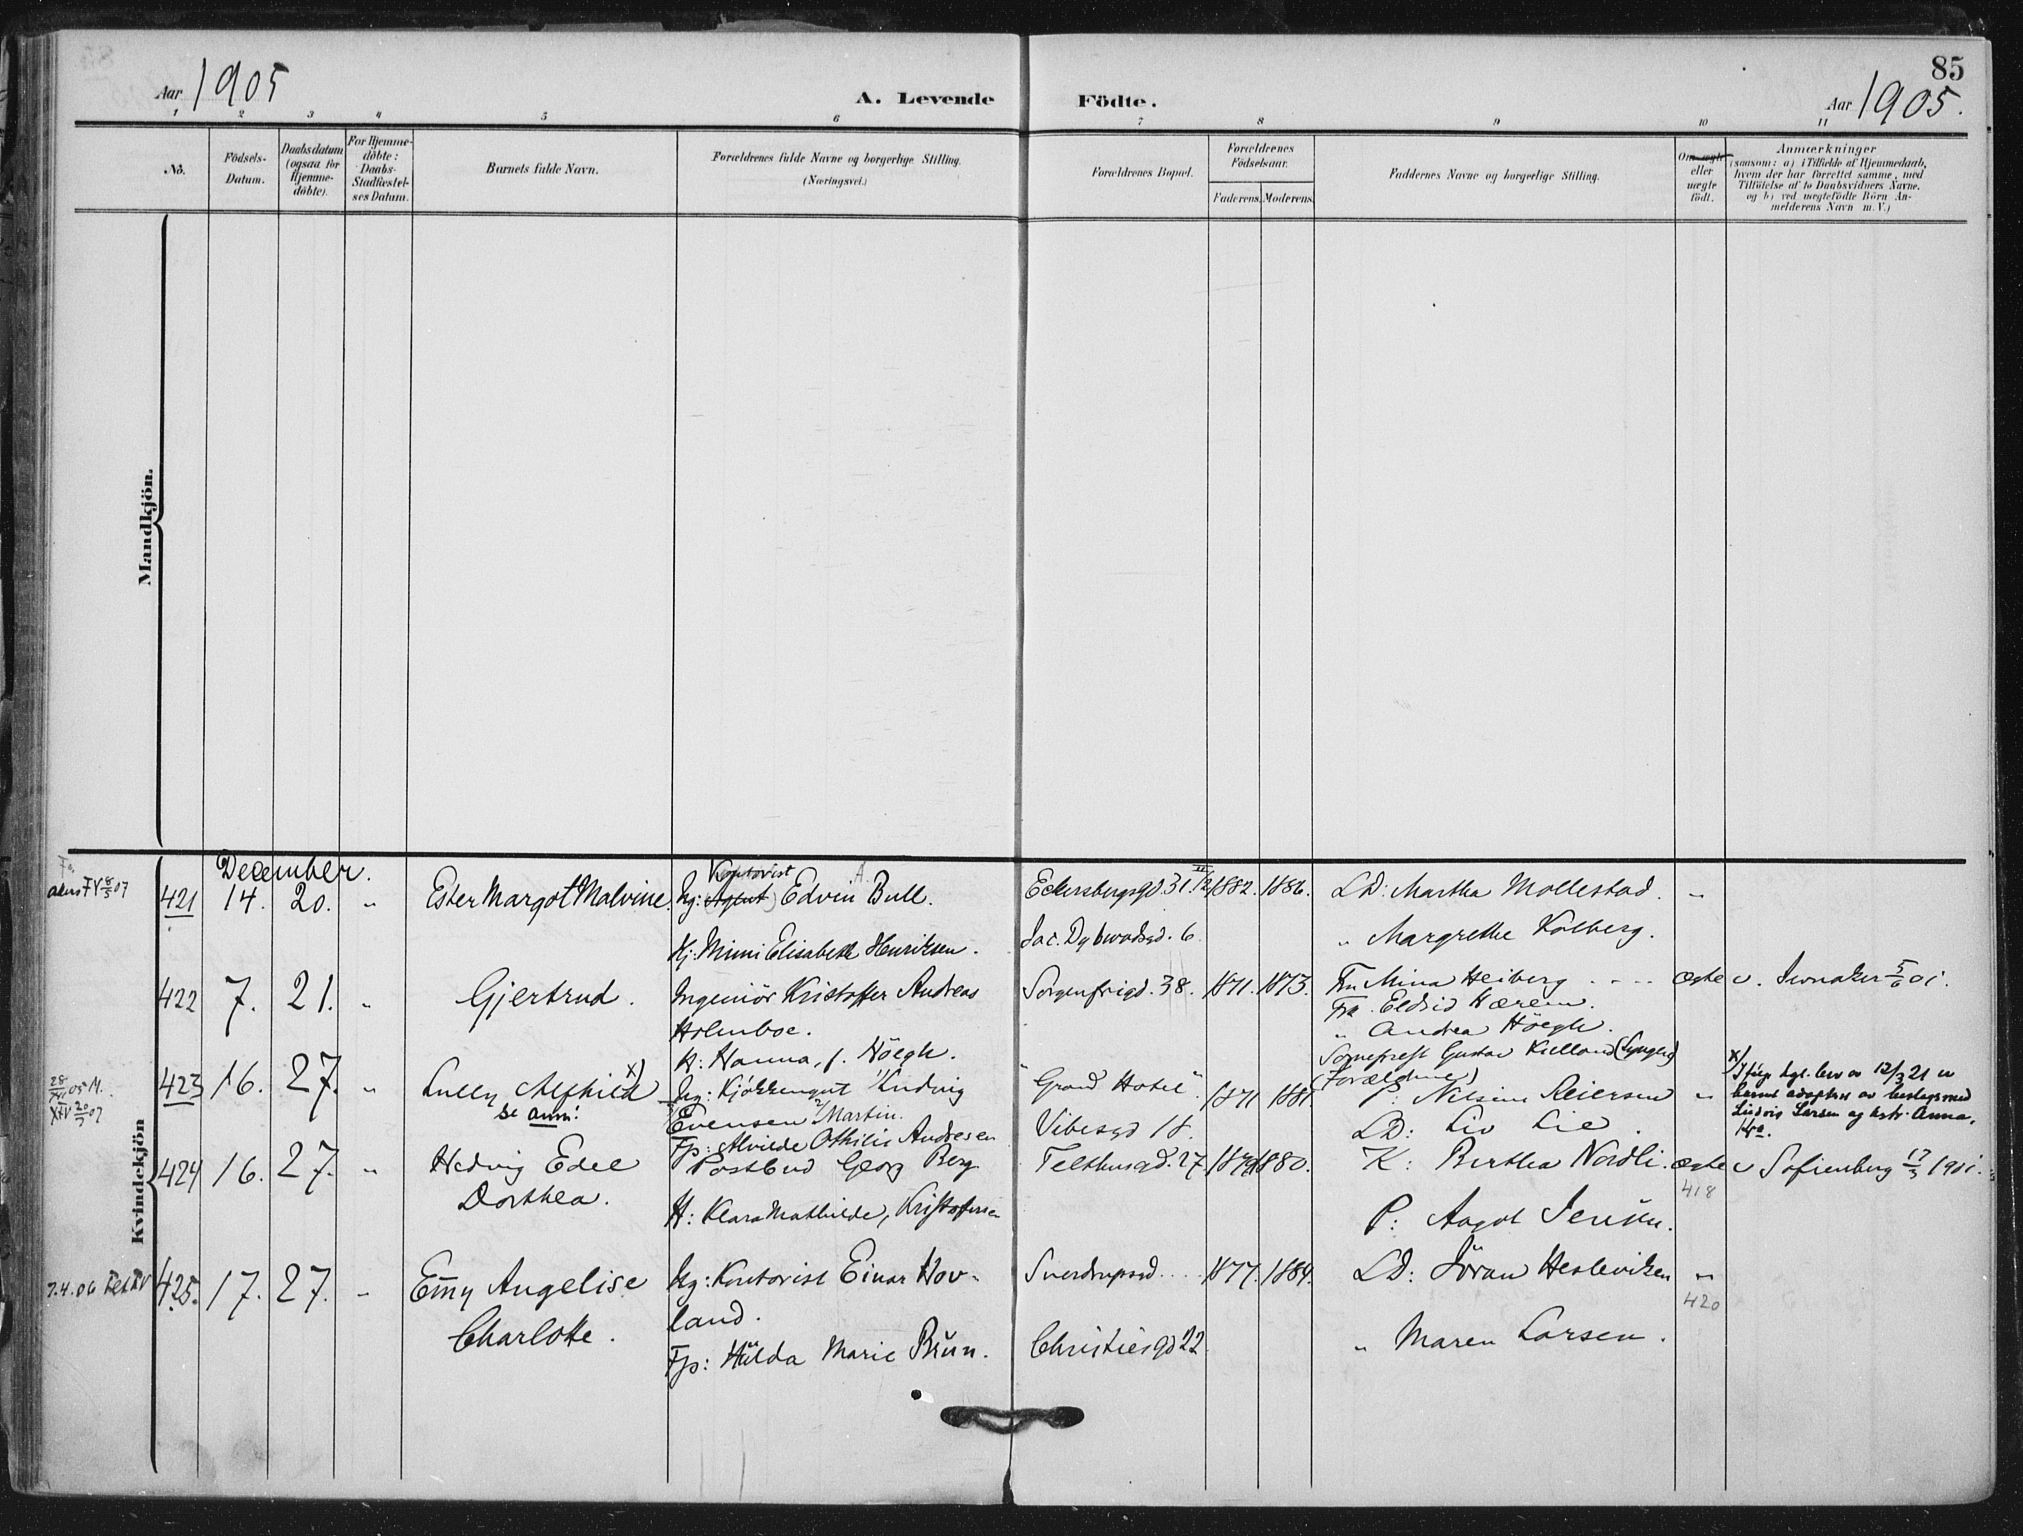 85
Aar 1905
A. Levende Födte.
Aar 1905.
1 2 3 4 5 6 7 8 9 10 11
No.
Födsels-Datum.
Daabsdatum (ogsaa for Hjemme-döbte).
For Hjemme-döbte: Daabs-Stadfæstel-ses Datum.
Barnets fulde Navn.
Forældrenes fulde Navne og borgerlige Stilling.
(Næringsvei.)
Forældrenes Bopæl.
Forældrenes Födselsaar.
Faderens. Moderens.
Faddernes Navne og borgerlige Stilling.
Om ægte eller uægte födt.
Anmærkninger
(saasom: a) i Tilfælde af Hjemmedaab,
hvem der har forrettet samme, med
Tilföielse af to Daabsvidners Navne.
og b) ved uægtefödte Börn An-
melderens Navn m. V.)
Mandkjön.
Kvindekjön
December.
421 14. 20. " Ester Margot Malvine. Ug: (Agent) Edvin Bull. Eckersbergsgd. 31. 1882. 1886. LD: Martha Mollestad. "
Kontorist A.
Hj: Mimi Elisabeth Henriksen. Jac. Dybwadsgd. 6 " Margrethe Kolberg.
422 7. 21. " Gjertrud. Ingeniör Kristoffer Andreas Sorgenfrigd. 38. 1871. 1873. Fru Mina Heiberg ægte v. Jevnaker 5/6 01.
Holmboe. Fru Eldrid Hærem.
H: Hanna, f. Höegh. " Andrea Höegh.
Sogneprest Gustav Kielland (Lyngen)
(Forældrene)
423 16. 27. " Lully Alfhild x) Ug: Kjökkengut Ludvig "Grand Hotel". 1871 1881. P: Nilsine Seiersen "
se anm: Evensen Martin.
Fp: Alvilde Othilie Andresen Vibesgd 18. LD: Liv Lie.
x) Ifölge kgl. bev av 12/3 21 er
barnet adoptert av beslagsmed
Ludvig Larsen og hstr. Anna,
Kra.
28/XII 05 M.
XIV 20/3 07
424 16. 27. " Hedvig Edel Postbud Georg Berg Telthusgd. 27 1880. K: Birthea Nordli. ægte v Sofienberg 17/3 1901.
Dorthea. H: Klara Mathilde, Kristofersen P: Aagot Jensen.
418
7.4.06
425. 17. 27. " Emy Angelise Ug: Kontorist Einar Hov- Sverdrupsgd. 1877. 1884. LD: Jöran Hesleviken "
Charlotte. land. 420
Fp: Hulda Marie Bruun. Christiesgd 22. " Maren Larsen.